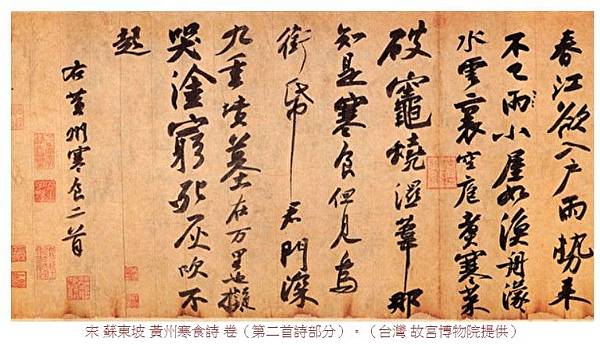 春江欲入戶雨勢來
不已雨小屋如漁舟濛
水雲裏空庖煮寒菜
破竈燒濕葦那
知是寒食但見烏
銜帋君門深
九重墳墓在万里也擬
哭塗窮死灰吹不
起
右黃州寒食二首
宋 蘇東坡 黃州寒食詩 卷（第二首詩部分）。（台灣 故宮博物院提供）